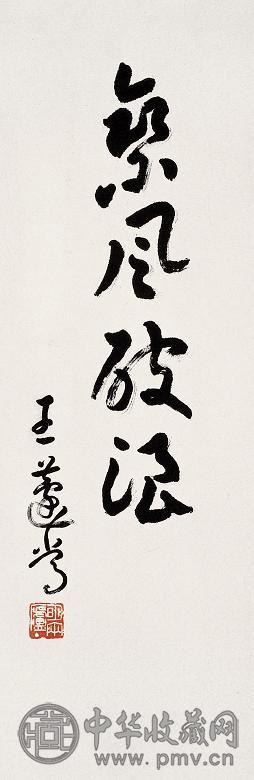 乘风破浪
王蘧常
中华收藏网
www.pmv.cn